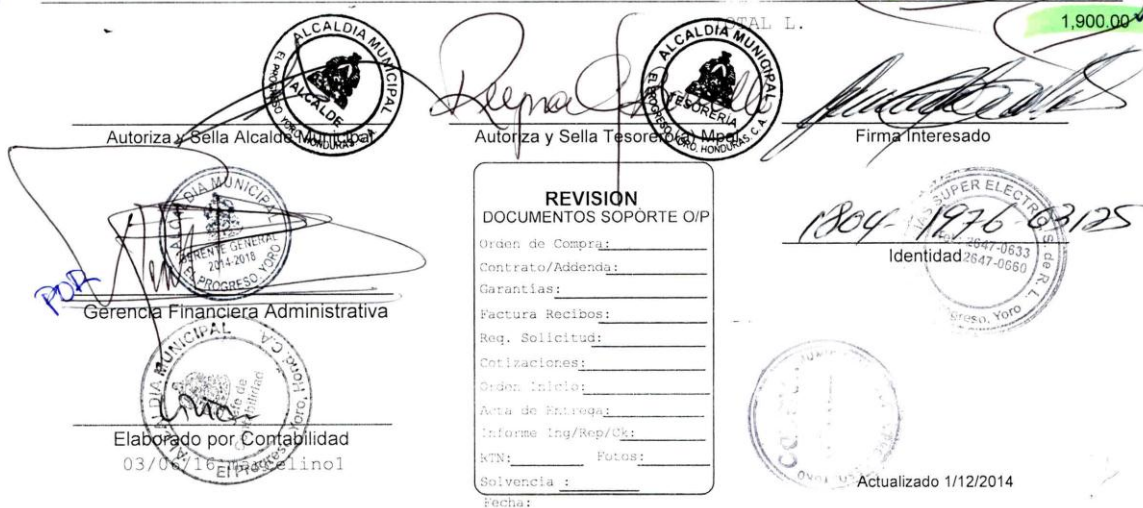 TOTAL L. 1,900.00
ALCALDIA MUNICIPAL
ALCALDE
EL PROGRESO, YORO, HONDURAS C.A.
ALCALDIA MUNICIPAL
TESORERIA
EL PROGRESO, YORO, HONDURAS, C.A.
Autoriza y Sella Alcalde Municipal
Autoriza y Sella Tesorero(a) Mpal.
Firma Interesado
ALCALDIA MUNICIPAL
GERENTE GENERAL
2014-2018
EL PROGRESO, YORO
POR
Gerencia Financiera Administrativa
REVISION
DOCUMENTOS SOPORTE O/P
Orden de Compra:
Contrato/Addenda:
Garantías:
Factura Recibos:
Req. Solicitud:
Cotizaciones:
Orden Inicio:
Acta de Entrega:
Informe Ing/Rep/Ck:
RTN: Fotos:
Solvencia :
Fecha:
1804-1976-03125
Identidad
SUPER ELECTRO S. de R. L.
2647-0633
2647-0660
Yoro
ALCALDIA MUNICIPAL
de Contabilidad
El Progreso, Yoro, Hond. C.A.
Elaborado por Contabilidad
03/06/16 marcelino1
Actualizado 1/12/2014